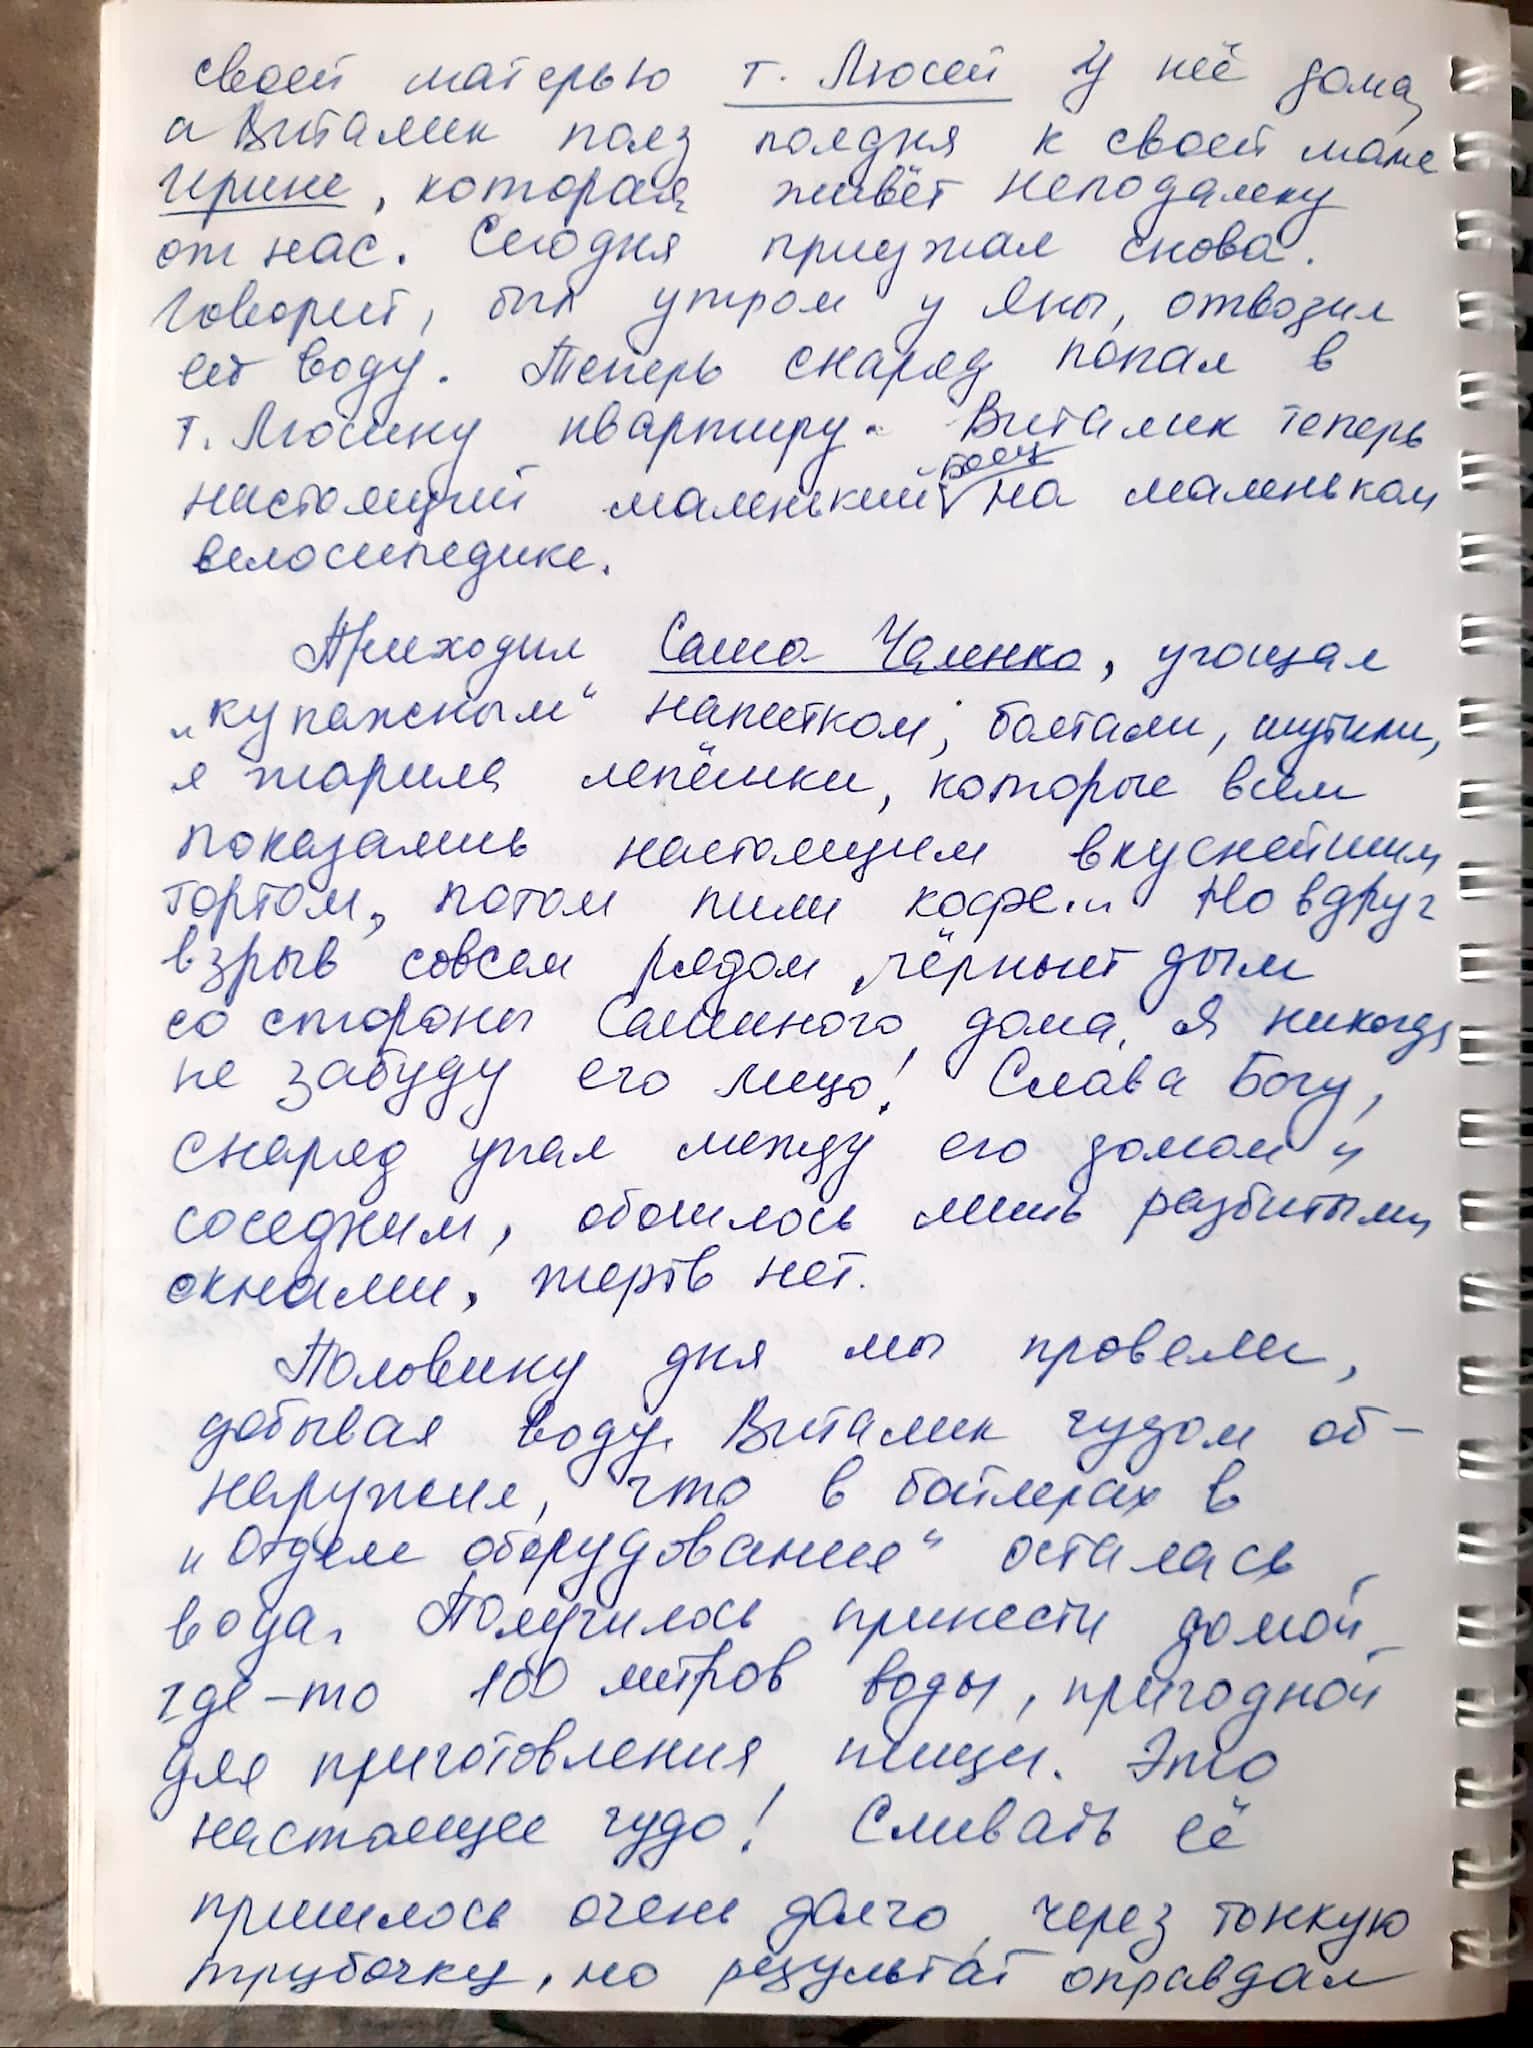 своей матерью т. Люсей у неё дома,
а Виталик полз полдня к своей маме
Ирине, которая живёт неподалеку
от нас. Сегодня приезжал снова.
Говорит, был утром у Яны, отвозил
ей воду. Теперь снаряд попал в
т. Люсину квартиру. Виталик теперь
настоящий маленький боец на маленьком
велосипедике.
Приходил Саша Чаленко, угощал
„купажным“ напитком, болтали, шутили,
я жарила лепёшки, которые всем
показались настоящим вкуснейшим
тортом, потом пили кофе... Но вдруг
взрыв совсем рядом, чёрный дым
со стороны Сашиного дома. Я никогда
не забуду его лицо! Слава Богу,
снаряд упал между его домом и
соседним, обошлось лишь разбитыми
окнами, жертв нет.
Половину дня мы провели,
добывая воду. Виталик чудом об-
наружил, что в бойлерах в
„Отделе оборудования“ осталась
вода. Получилось принести домой
где-то 100 литров воды, пригодной
для приготовления пищи. Это
настоящее чудо! Сливать её
пришлось очень долго, через тонкую
трубочку, но результат оправдал